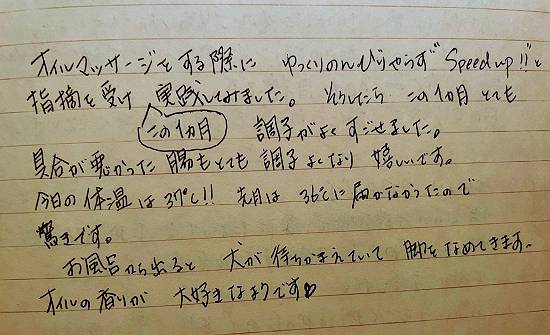 オイルマッサージをする際に ゆっくりのんびりやらず"Speed up!!"と
指摘を受け 実践してみました。 そうしたら この1カ月 とても
この1カ月 調子がよく すごせました。
具合が悪かった 腸もとても 調子よくなり 嬉しいです。
今日の体温は37℃!! 先月は 36℃に届かなかったので
驚きです。
お風呂から出ると 犬が待ちかまえていて 脚をなめてきます。
オイルの香りが 大好きなようです♡